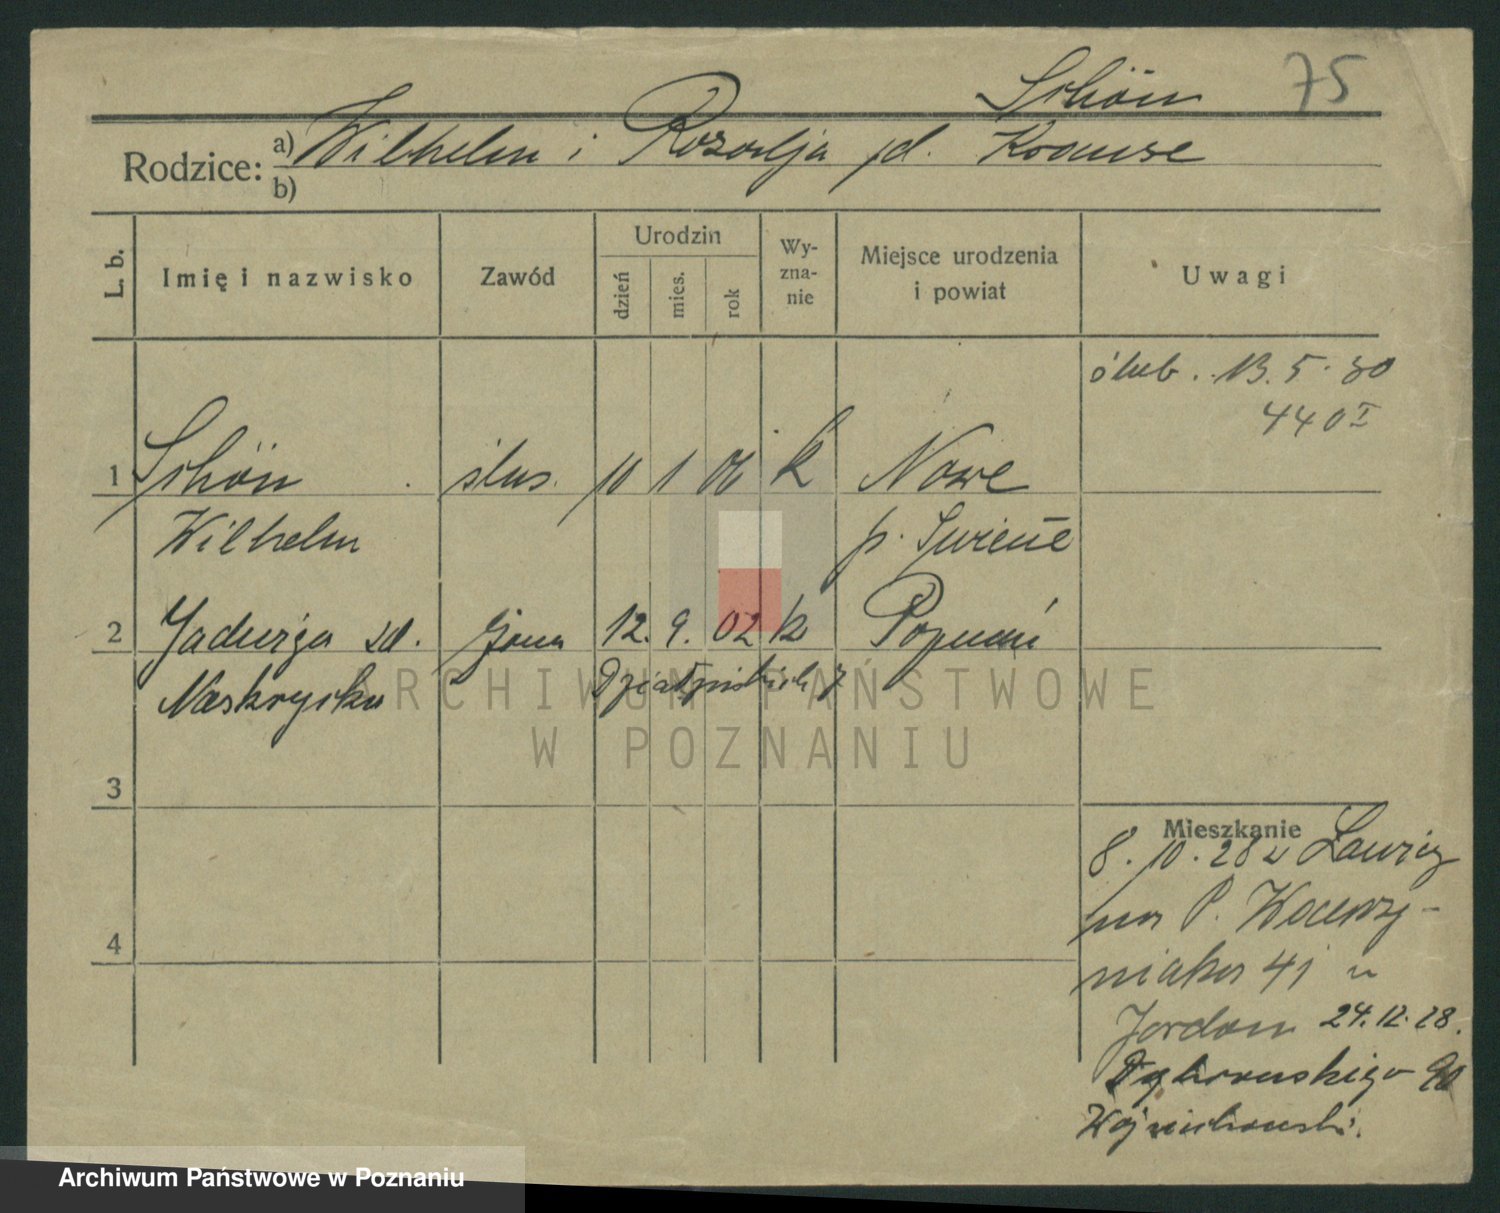 Schön 75
Rodzice: a) Wilhelm i Rozalja zd. Krause
b)
L. b. Imię i nazwisko Zawód Urodzin dzień mies. rok Wy-zna-nie Miejsce urodzenia i powiat Uwagi
ślub. 13.5.30
440 I
1 Schön ślus. 10 1 06 k Nowe
Wilhelm p. Świecie
2 Jadwiga zd. żona 12. 9. 02 k Poznań
Naskrycka Działyńskich 7
ARCHIWUM PAŃSTWOWE
W POZNANIU
3
Mieszkanie
8.10.28 z Ławicy
4
P.
41 u
Jordan 24.12.28.
Dąbrowskiego 90
Wojciechowski.
Archiwum Państwowe w Poznaniu